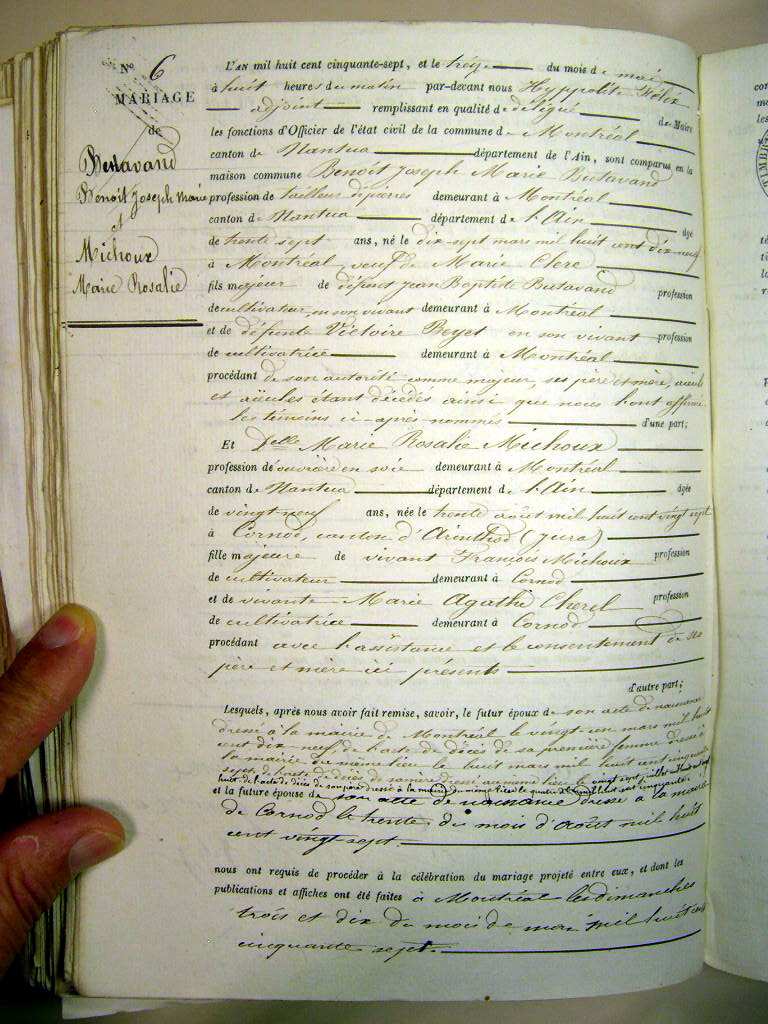 N° 6
MARIAGE
de
Butavand
Benoit Joseph Marie
et
Michoux
Marie Rosalie
L'AN mil huit cent cinquante-sept, et le treize du mois de mai
à huit heures du matin par-devant nous Hyppolite Félix
adjoint remplissant en qualité de délégué de Maire
les fonctions d'Officier de l'état civil de la commune de Montréal
canton de Nantua département de l'Ain, sont comparus en la
maison commune Benoit Joseph Marie Butavand
profession de tailleur de pierres demeurant à Montréal
canton de Nantua département de l'Ain âgé
de trente sept ans, né le dix sept mars mil huit cent dix neuf
à Montréal, veuf de Marie Clerc
fils majeur de défunt Jean Baptiste Butavand profession
de cultivateur en son vivant demeurant à Montréal
et de défunte Victoire Reyet en son vivant profession
de cultivatrice demeurant à Montréal
procédant de son autorité comme majeur, ses père et mère, aïeuls
et aïeules étant décédés ainsi que nous l'ont affirmé
les témoins ci-après nommés d'une part;
Et Delle Marie Rosalie Michoux
profession de ouvrière en soie demeurant à Montréal
canton de Nantua département de l'Ain âgée
de vingt neuf ans, née le trente août mil huit cent vingt sept
à Cornod, canton d'Arinthod (Jura)
fille majeure de vivant François Michoux profession
de cultivateur demeurant à Cornod
et de vivante Marie Agathe Cherel profession
de cultivatrice demeurant à Cornod
procédant avec l'assistance et le consentement de ses
père et mère ici présents
d'autre part;
Lesquels, après nous avoir fait remise, savoir, le futur époux de son acte de naissance
dressé à la mairie de Montréal le vingt un mars mil huit
cent dix neuf de l'acte de décès de sa première femme dressé à
la mairie du même lieu le huit mars mil huit cent cinquante
sept, de l'acte de décès de sa mère dressé au même lieu le vingt sept juillet mil huit cent
huit, de l'acte de décès de son père dressé à la mairie du même lieu le quatre huit cent cinquante
et la future épouse de son acte de naissance dressé à la mairie
de Cornod le trente du mois d'août mil huit
cent vingt sept.
nous ont requis de procéder à la célébration du mariage projeté entre eux, et dont les
publications et affiches ont été faites à Montréal les dimanches
trois et dix du mois de mai mil huit cent
cinquante sept.